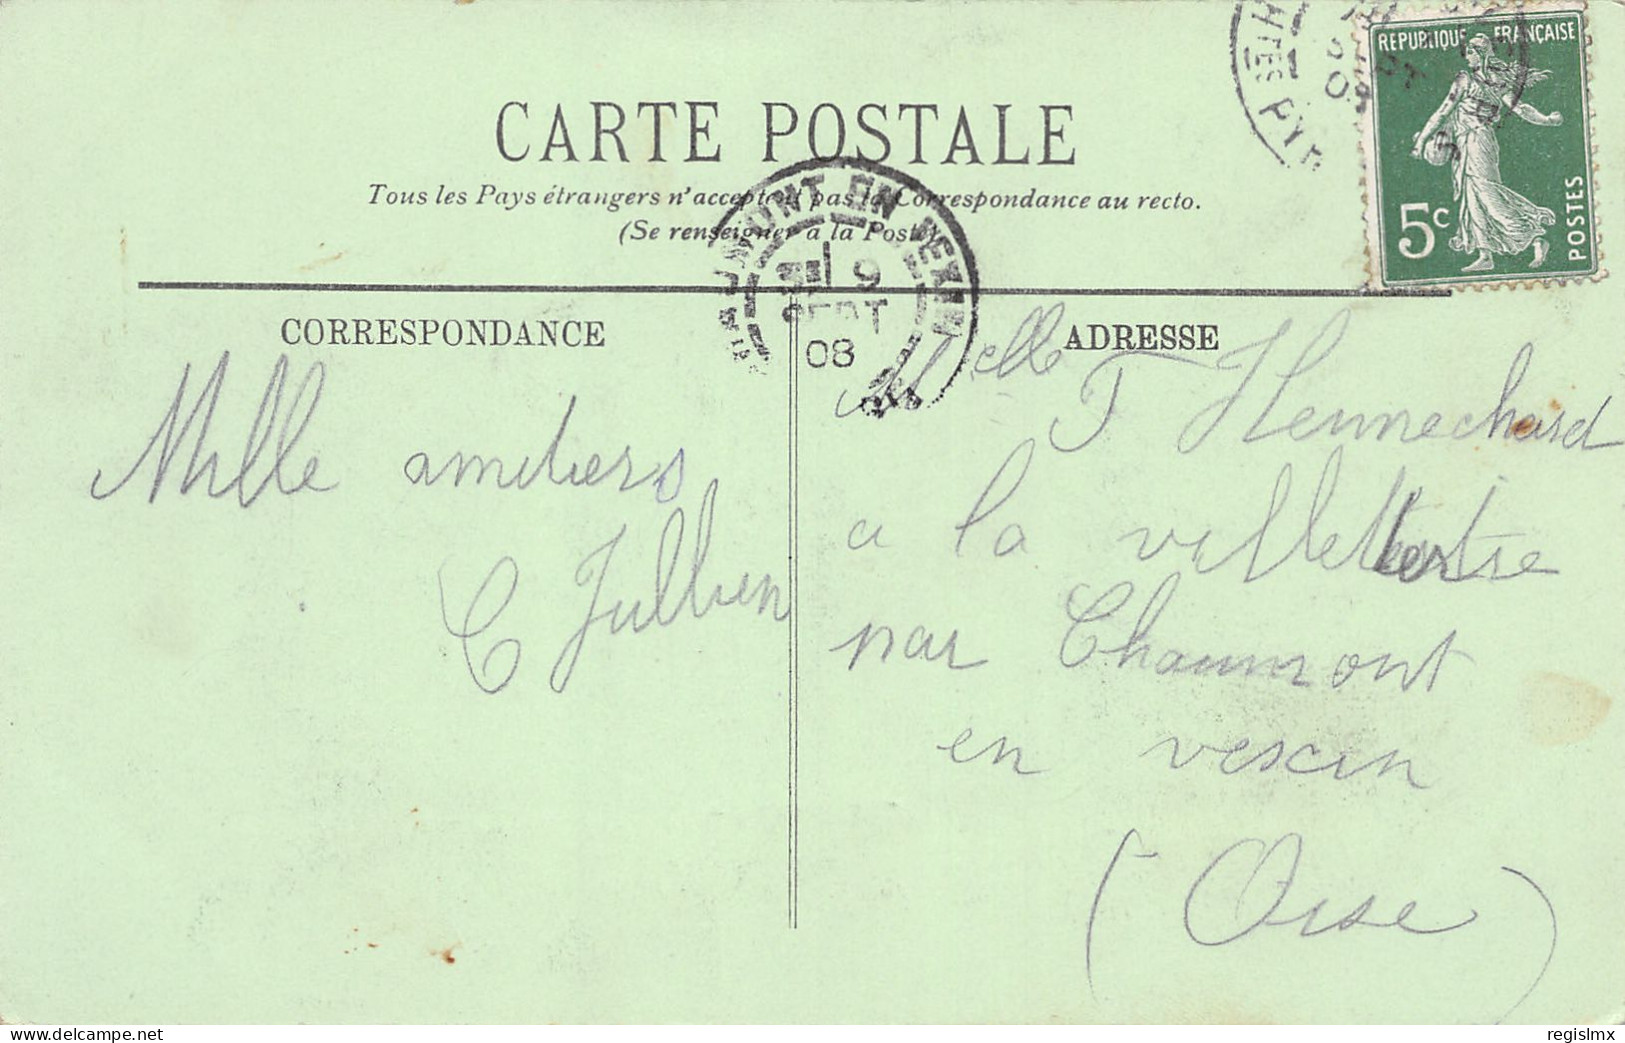 CARTE POSTALE
Tous les Pays étrangers n'acceptent pas la Correspondance au recto.
(Se renseigner à la Poste)
REPUBLIQUE FRANÇAISE
5c
POSTES
HTES PYR
CHAUMONT EN VEXIN
9
SEPT
08
CORRESPONDANCE
Mille amitiers
C Jullien
ADRESSE
Melle F Hennechard
a la villetertre
par Chaumont
en vexcin
(Oise)
www.delcampe.net
regislmx